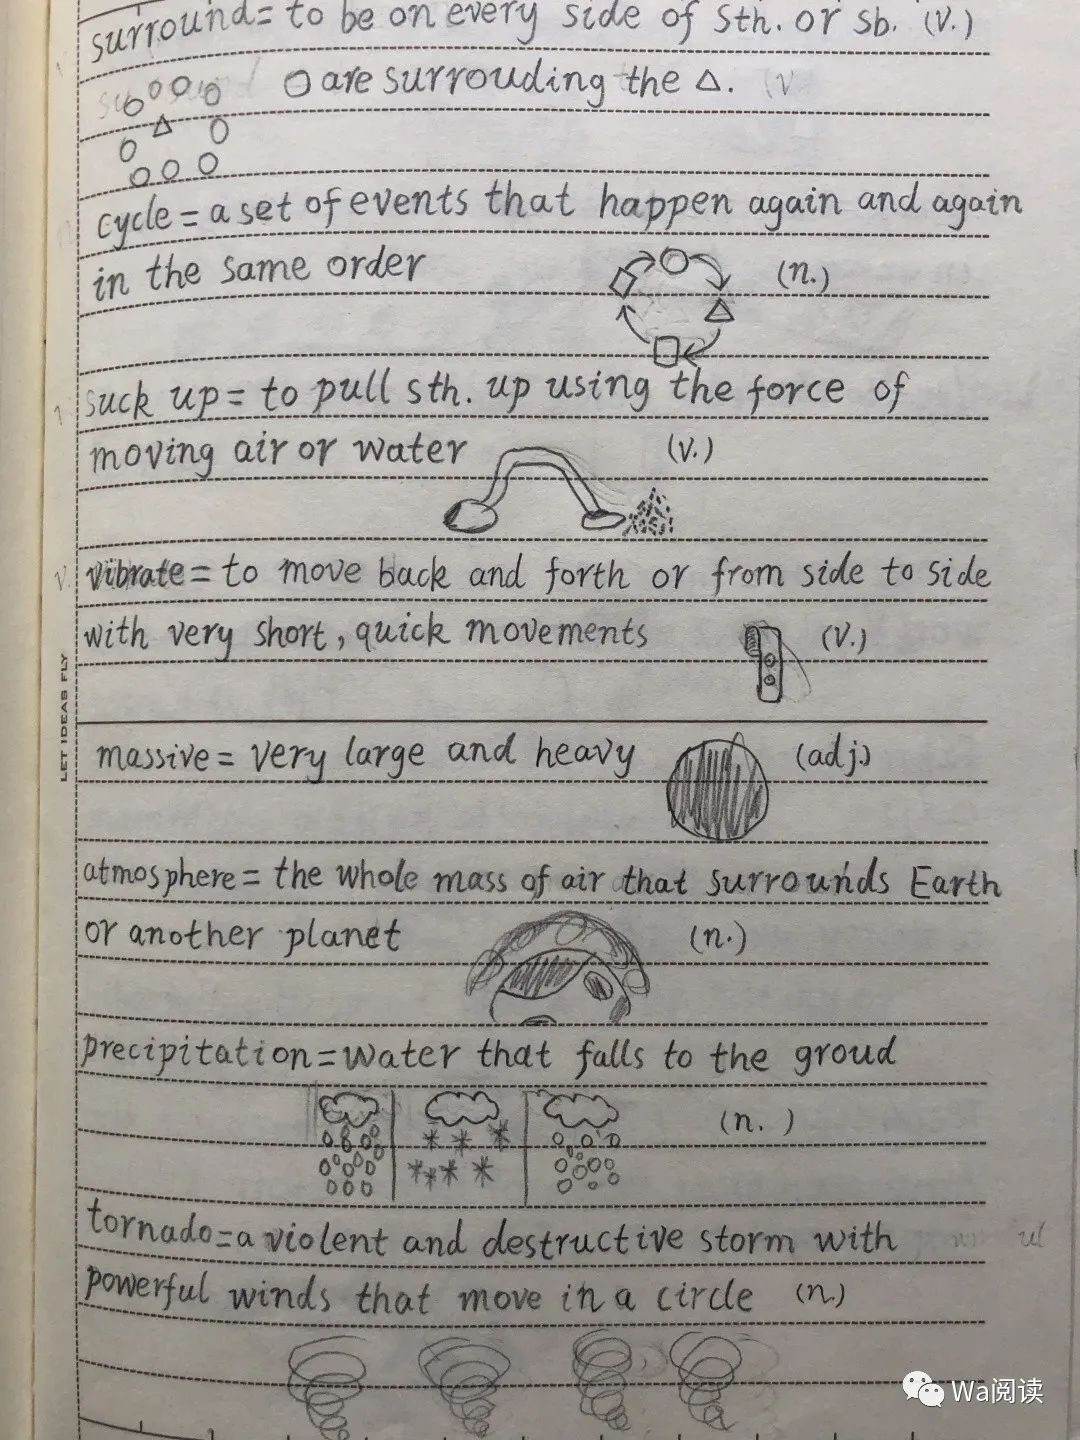 surround= to be on every side of sth. or sb. (v.)
O are surrouding the △.
cycle = a set of events that happen again and again
in the same order (n.)
suck up = to pull sth. up using the force of
moving air or water (v.)
v. vibrate = to move back and forth or from side to side
with very short, quick movements (v.)
LET IDEAS FLY
massive = very large and heavy (adj.)
atmosphere = the whole mass of air that surrounds Earth
or another planet (n.)
precipitation = water that falls to the groud
(n.)
tornado = a violent and destructive storm with
powerful winds that move in a circle (n.)
Wa阅读